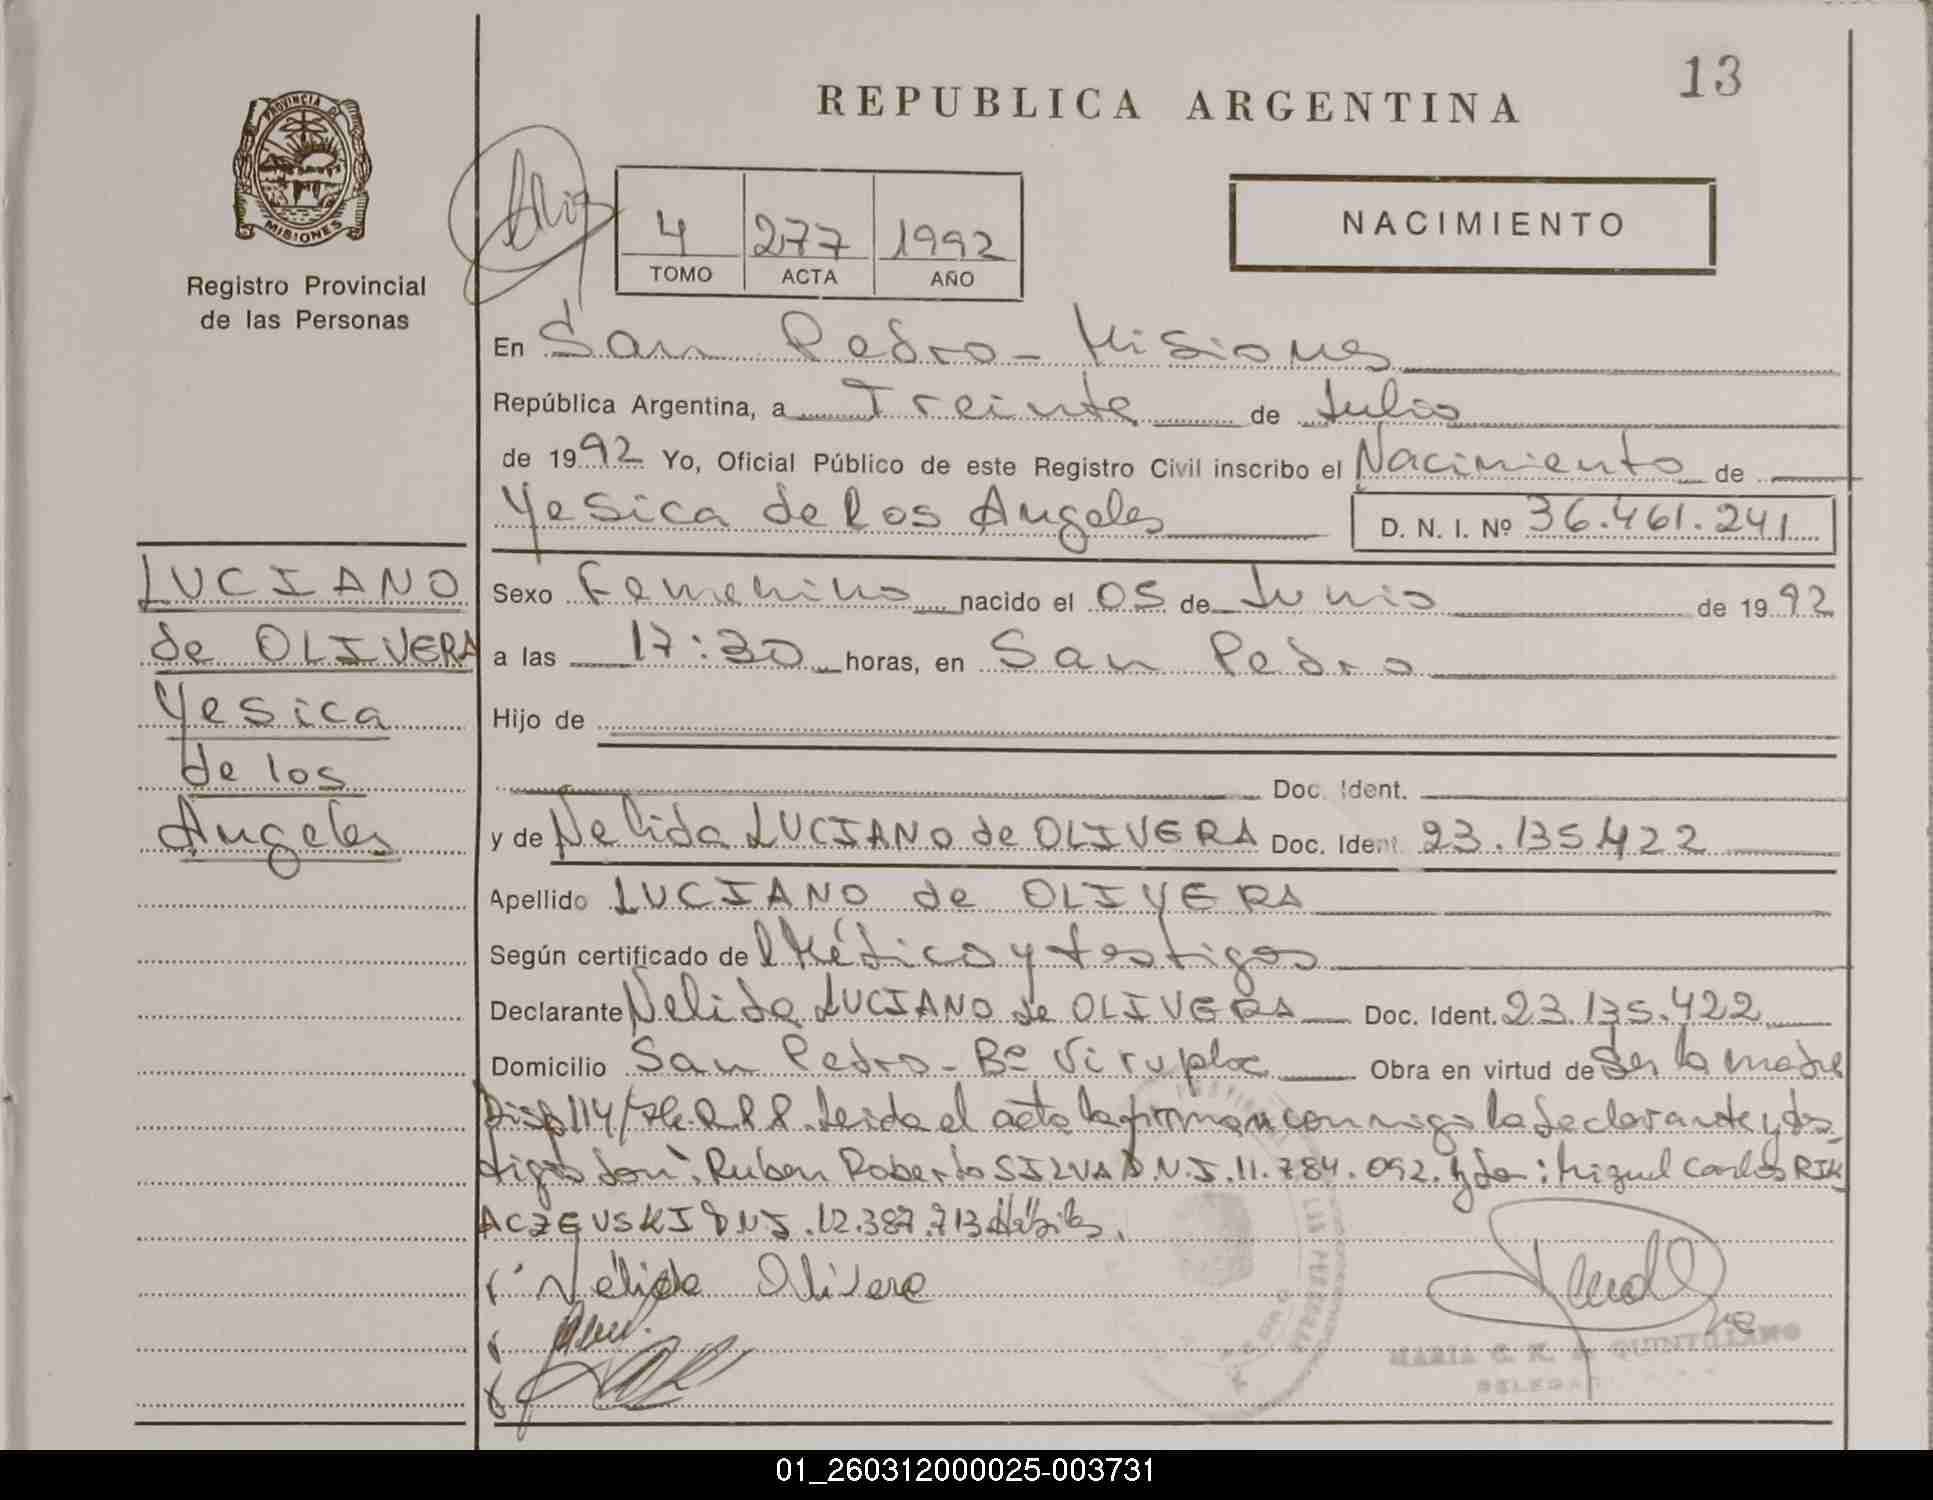 13
REPUBLICA ARGENTINA
PROVINCIA DE
MISIONES
Registro Provincial
de las Personas
4 277 1992
TOMO ACTA AÑO
NACIMIENTO
En San Pedro - Misiones
República Argentina, a Treinta de Julio
de 1992 Yo, Oficial Público de este Registro Civil inscribo el Nacimiento de
Yesica de los Angeles D. N. I. Nº 36.461.241
LUCIANO
de OLIVERA
Yesica
de los
Angeles
Sexo Femenino nacido el 05 de Junio de 1992
a las 17:30 horas, en San Pedro
Hijo de
Doc. Ident.
y de Nelida LUCIANO de OLIVERA Doc. Ident. 23.135.422
Apellido LUCIANO de OLIVERA
Según certificado del Médico y testigos
Declarante Nelida LUCIANO de OLIVERA Doc. Ident. 23.135.422
Domicilio San Pedro - Bº Obra en virtud de Ser la madre
Disp 114/ R.P.P. Leida el acta la firman conmigo la declarante y tes
tigos don: Ruben Roberto SILVA D.N.I. 11.784.092. y don: Miguel Carlos RIK
ACZEVSKI D.N.I. 12.387.713 Hábiles.
Nélida Olivera
MARIA C. K. QUINTILLANO
DELEGAD
01_260312000025-003731